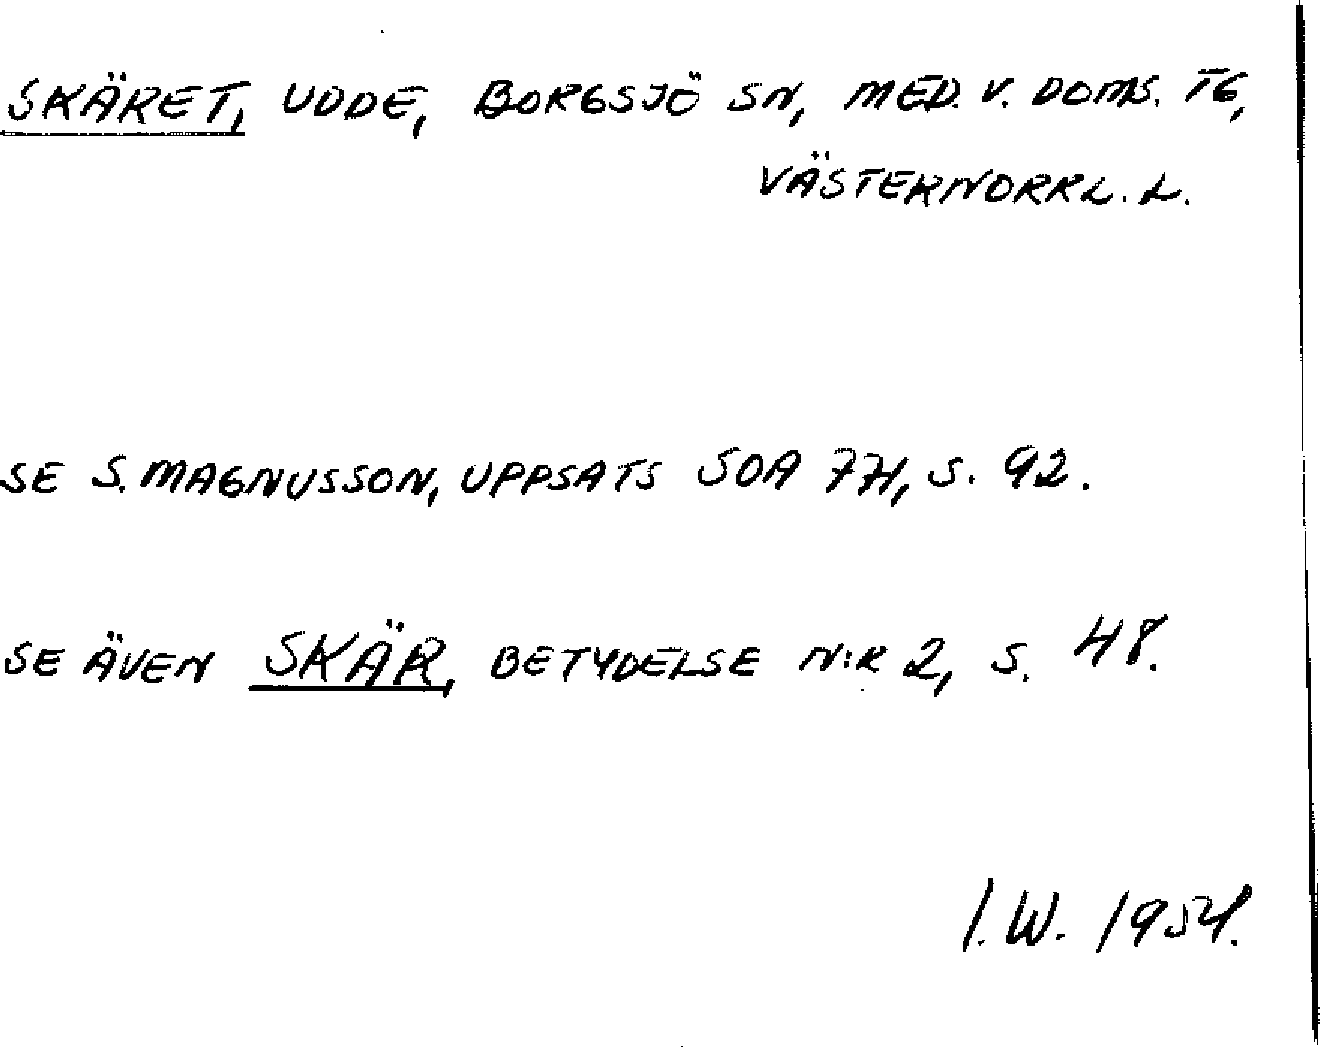 SKÄRET, UDDE, BORGSJÖ SN, MED. V. DOMS. TG,
VÄSTERNORRL. L.
SE S. MAGNUSSON, UPPSATS SOA 774, S. 92.
SE ÄVEN SKÄR, BETYDELSE N:R 2, S. 48.
I. W. 1954.